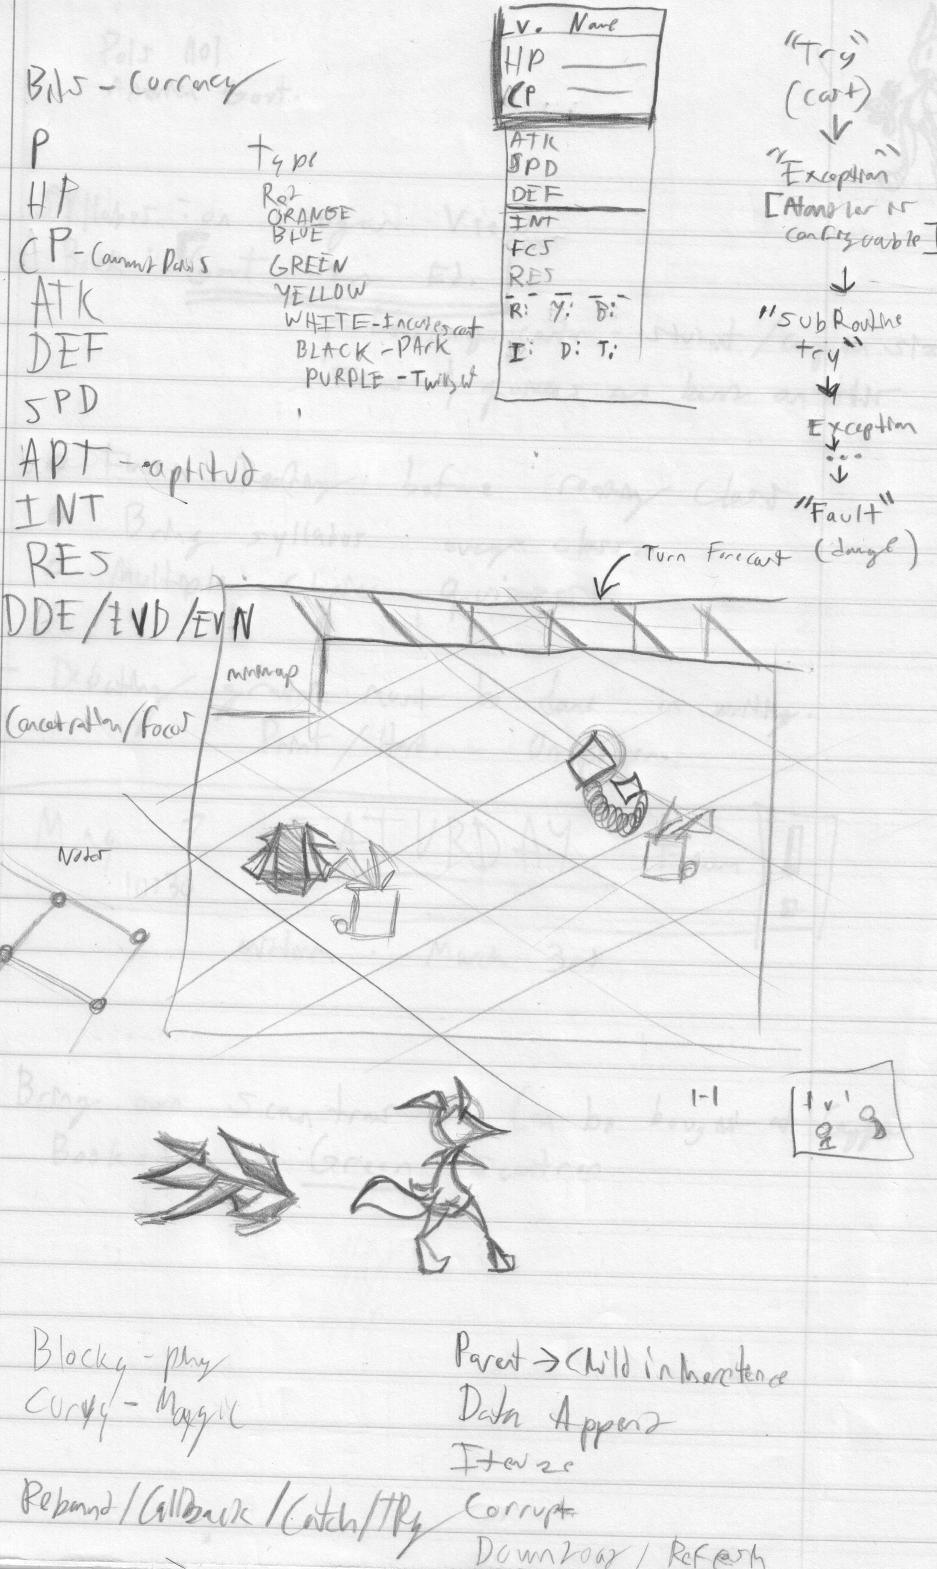 Bits - Currency
P
HP
CP - Command Points
ATK
DEF
SPD
APT - aptitud
INT
RES
DDE/EVD/EVN
Concetration/Focus
Type
Red
ORANGE
BLUE
GREEN
YELLOW
WHITE - Incandescent
BLACK - DARK
PURPLE - Twilight
Lv. Name
HP
CP
ATK
SPD
DEF
INT
FCS
RES
R: Y: B:
I: D: T:
"Try"
(cast)
"Exception"
configurable]
"SubRoutine
try"
Exception
...
"Fault"
(damge)
Turn Forecast
minimap
Nodes
1-1
Blocky - phy
Curvy - Maygic
Rebound/Callback/Catch/TRy
Parent → Child inhereitence
Data Append
Iterate
Corrupt
Download / Refresh